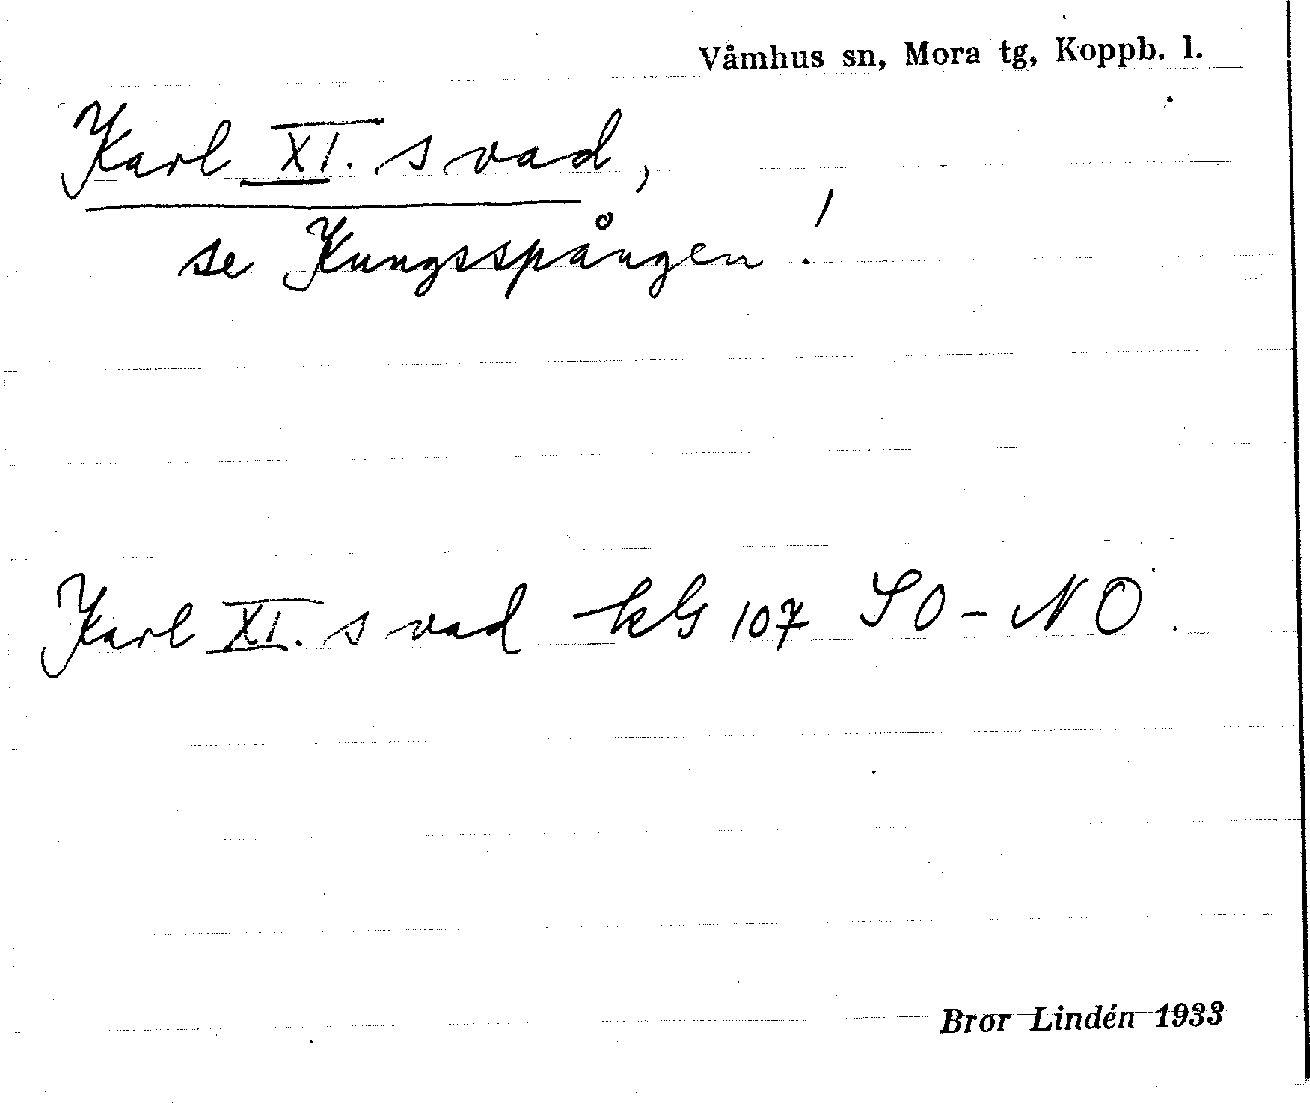 Våmhus sn, Mora tg, Koppb. l.
Karl XI. s vad,
se Kungsspången!
Karl XI. s vad kbl 107 SO - NO.
Bror Lindén 1933